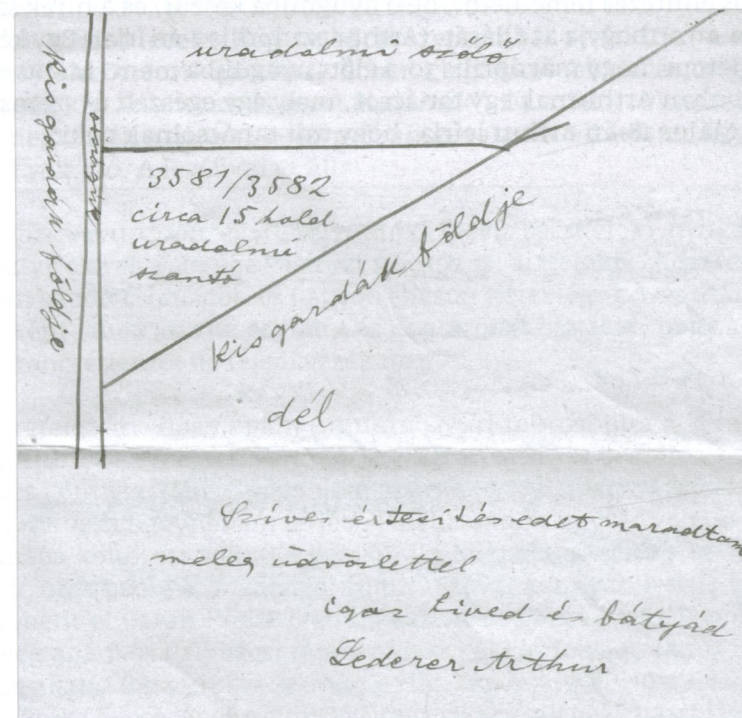 uradalmi szőlő
Kisgazdák földje
országút
3581/3582
circa 15 hold
uradalmi
szantó
Kisgazdák földje
dél
Szives értesitésedet maradtam
meleg üdvöslettel
igaz hived és bátyád
Lederer Arthur